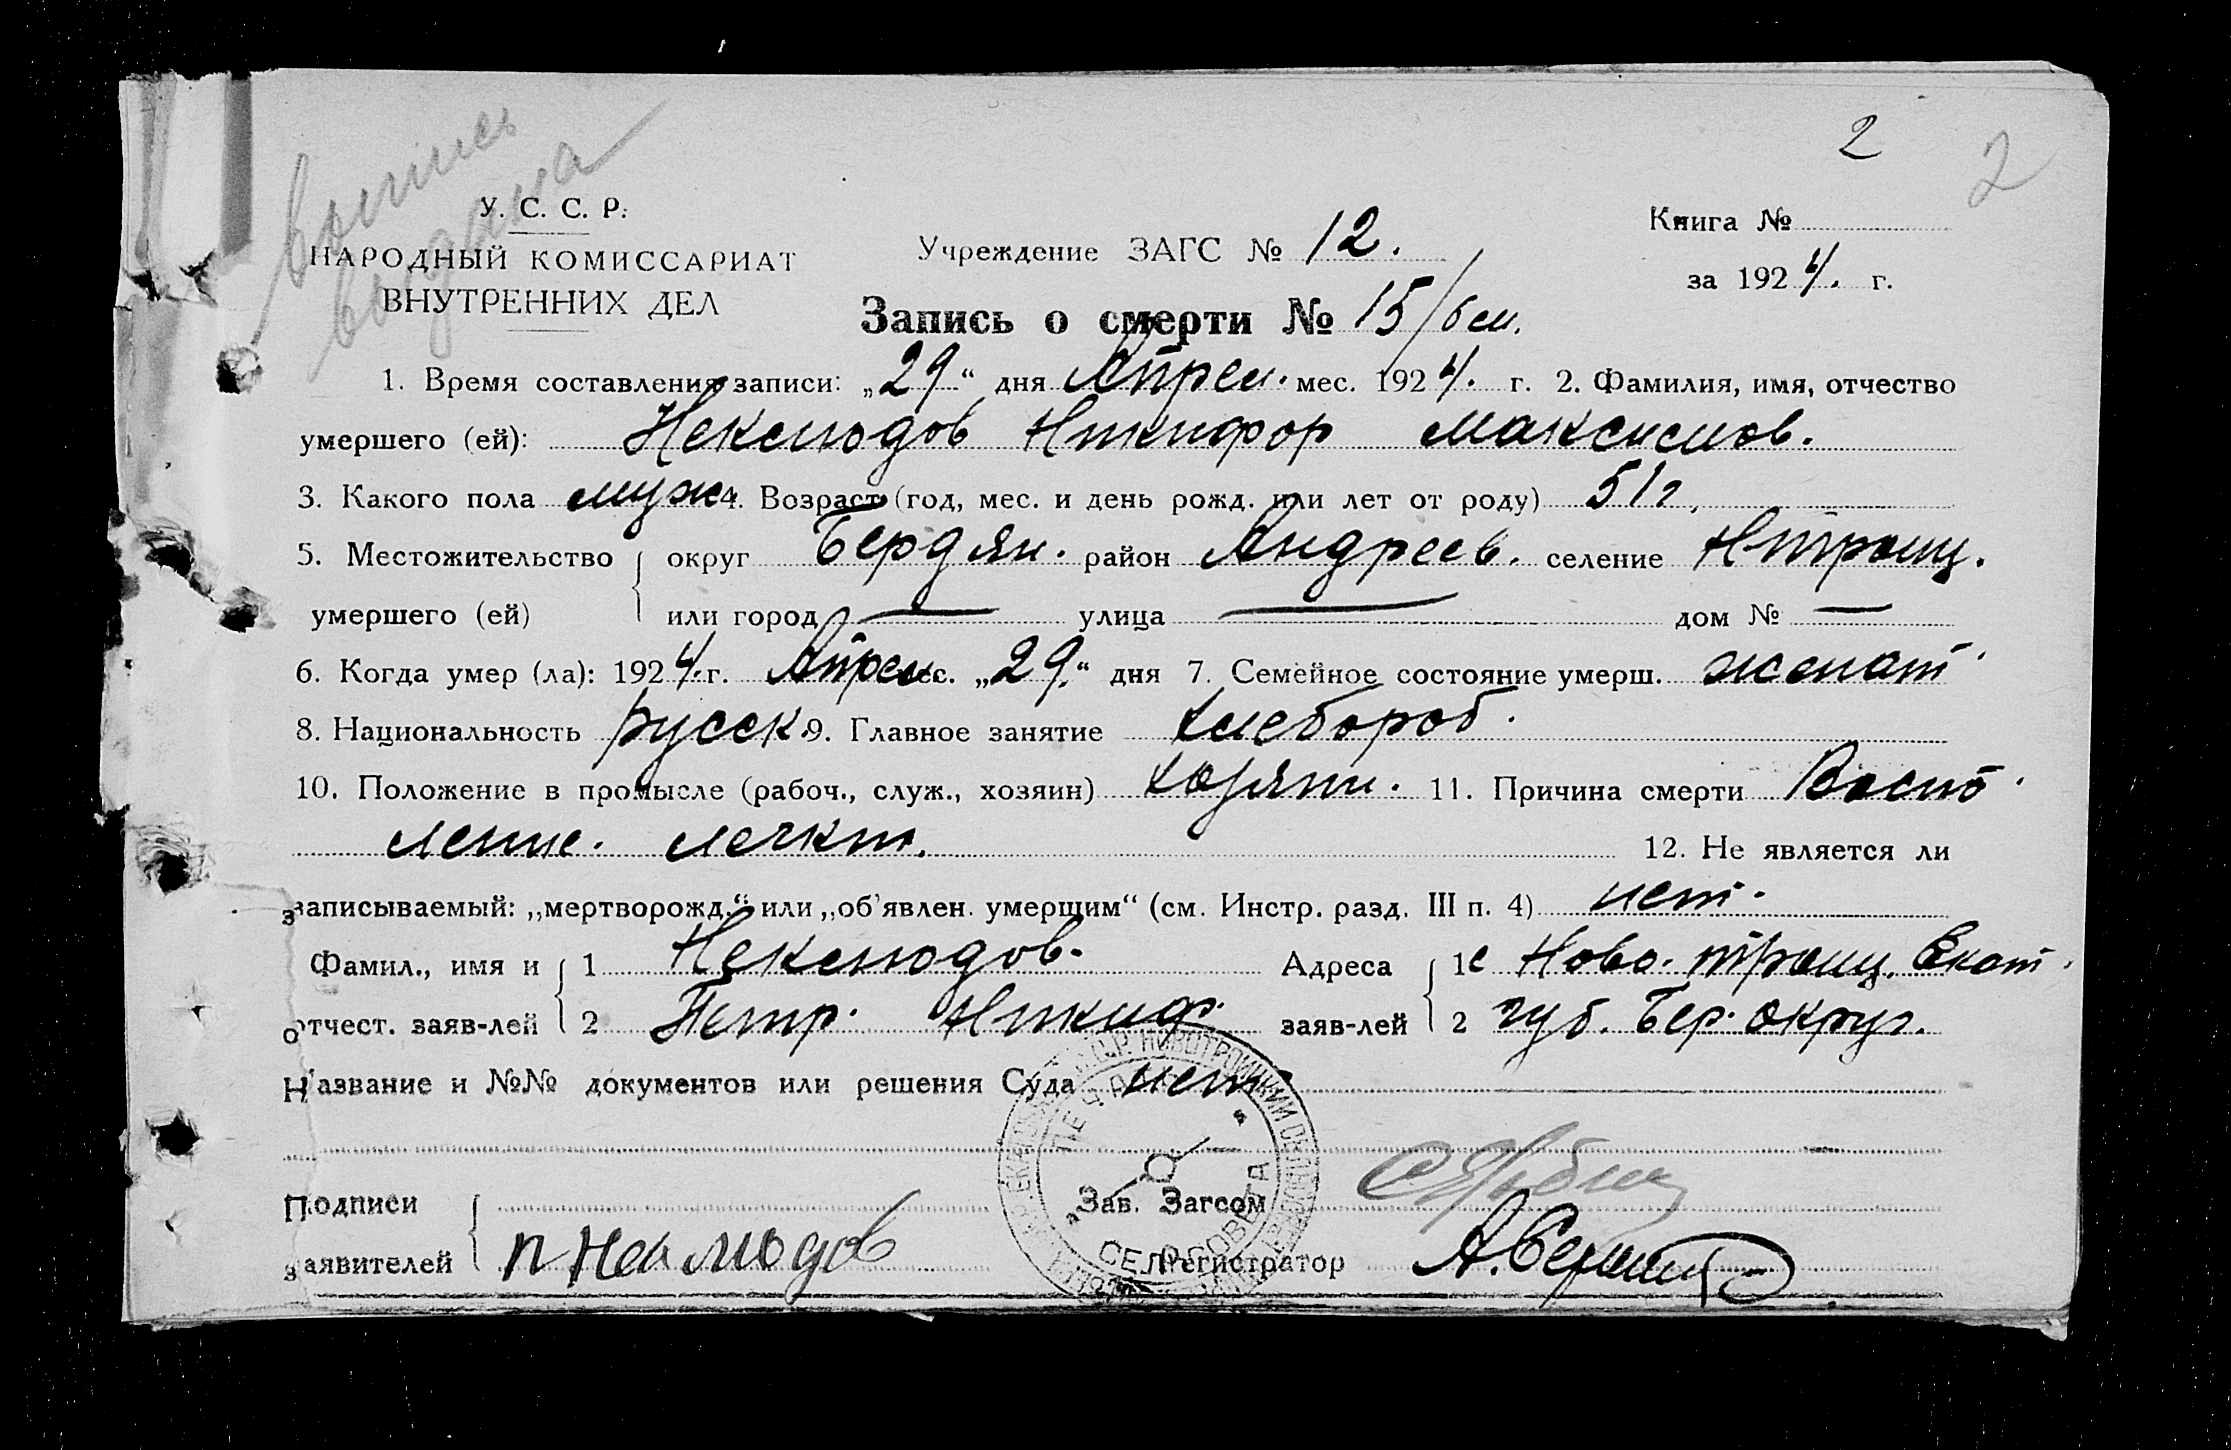 2 2
выпись
выдана
У. С. С. Р.
НАРОДНЫЙ КОМИССАРИАТ
ВНУТРЕННИХ ДЕЛ
Учреждение ЗАГС № 12.
Книга №
за 1924. г.
Запись о смерти № 15/6 см.
1. Время составления записи: „29“ дня Апрел. мес. 1924. г. 2. Фамилия, имя, отчество
умершего (ей): Неклюдов Никифор Максимов.
3. Какого пола муж 4. Возраст (год, мес. и день рожд. или лет от роду) 51 г.
5. Местожительство округ Бердян. район Андреев. селение Нтроиц.
умершего (ей) или город — улица — дом № —
6. Когда умер (ла): 1924. г. Апрел мес. „29.“ дня 7. Семейное состояние умерш. женат
8. Национальность русск. 9. Главное занятие хлебороб.
10. Положение в промысле (рабоч., служ., хозяин) хозяин. 11. Причина смерти Воспо
ление. легких. 12. Не является ли
записываемый: „мертворожд.“ или „об'явлен. умершим“ (см. Инстр. разд. III п. 4) нет.
Фамил., имя и 1 Неклюдов. Адреса 1 с Ново. троиц. Екат.
отчест. заяв-лей 2 Петр. Никиф. заяв-лей 2 губ. Бер. округ.
Название и №№ документов или решения Суда нет
НОВОТРОИЦКИЙ СЕЛЬСОВЕТА
Подписи Зав. Загсом
заявителей п Неклюдов Регистратор